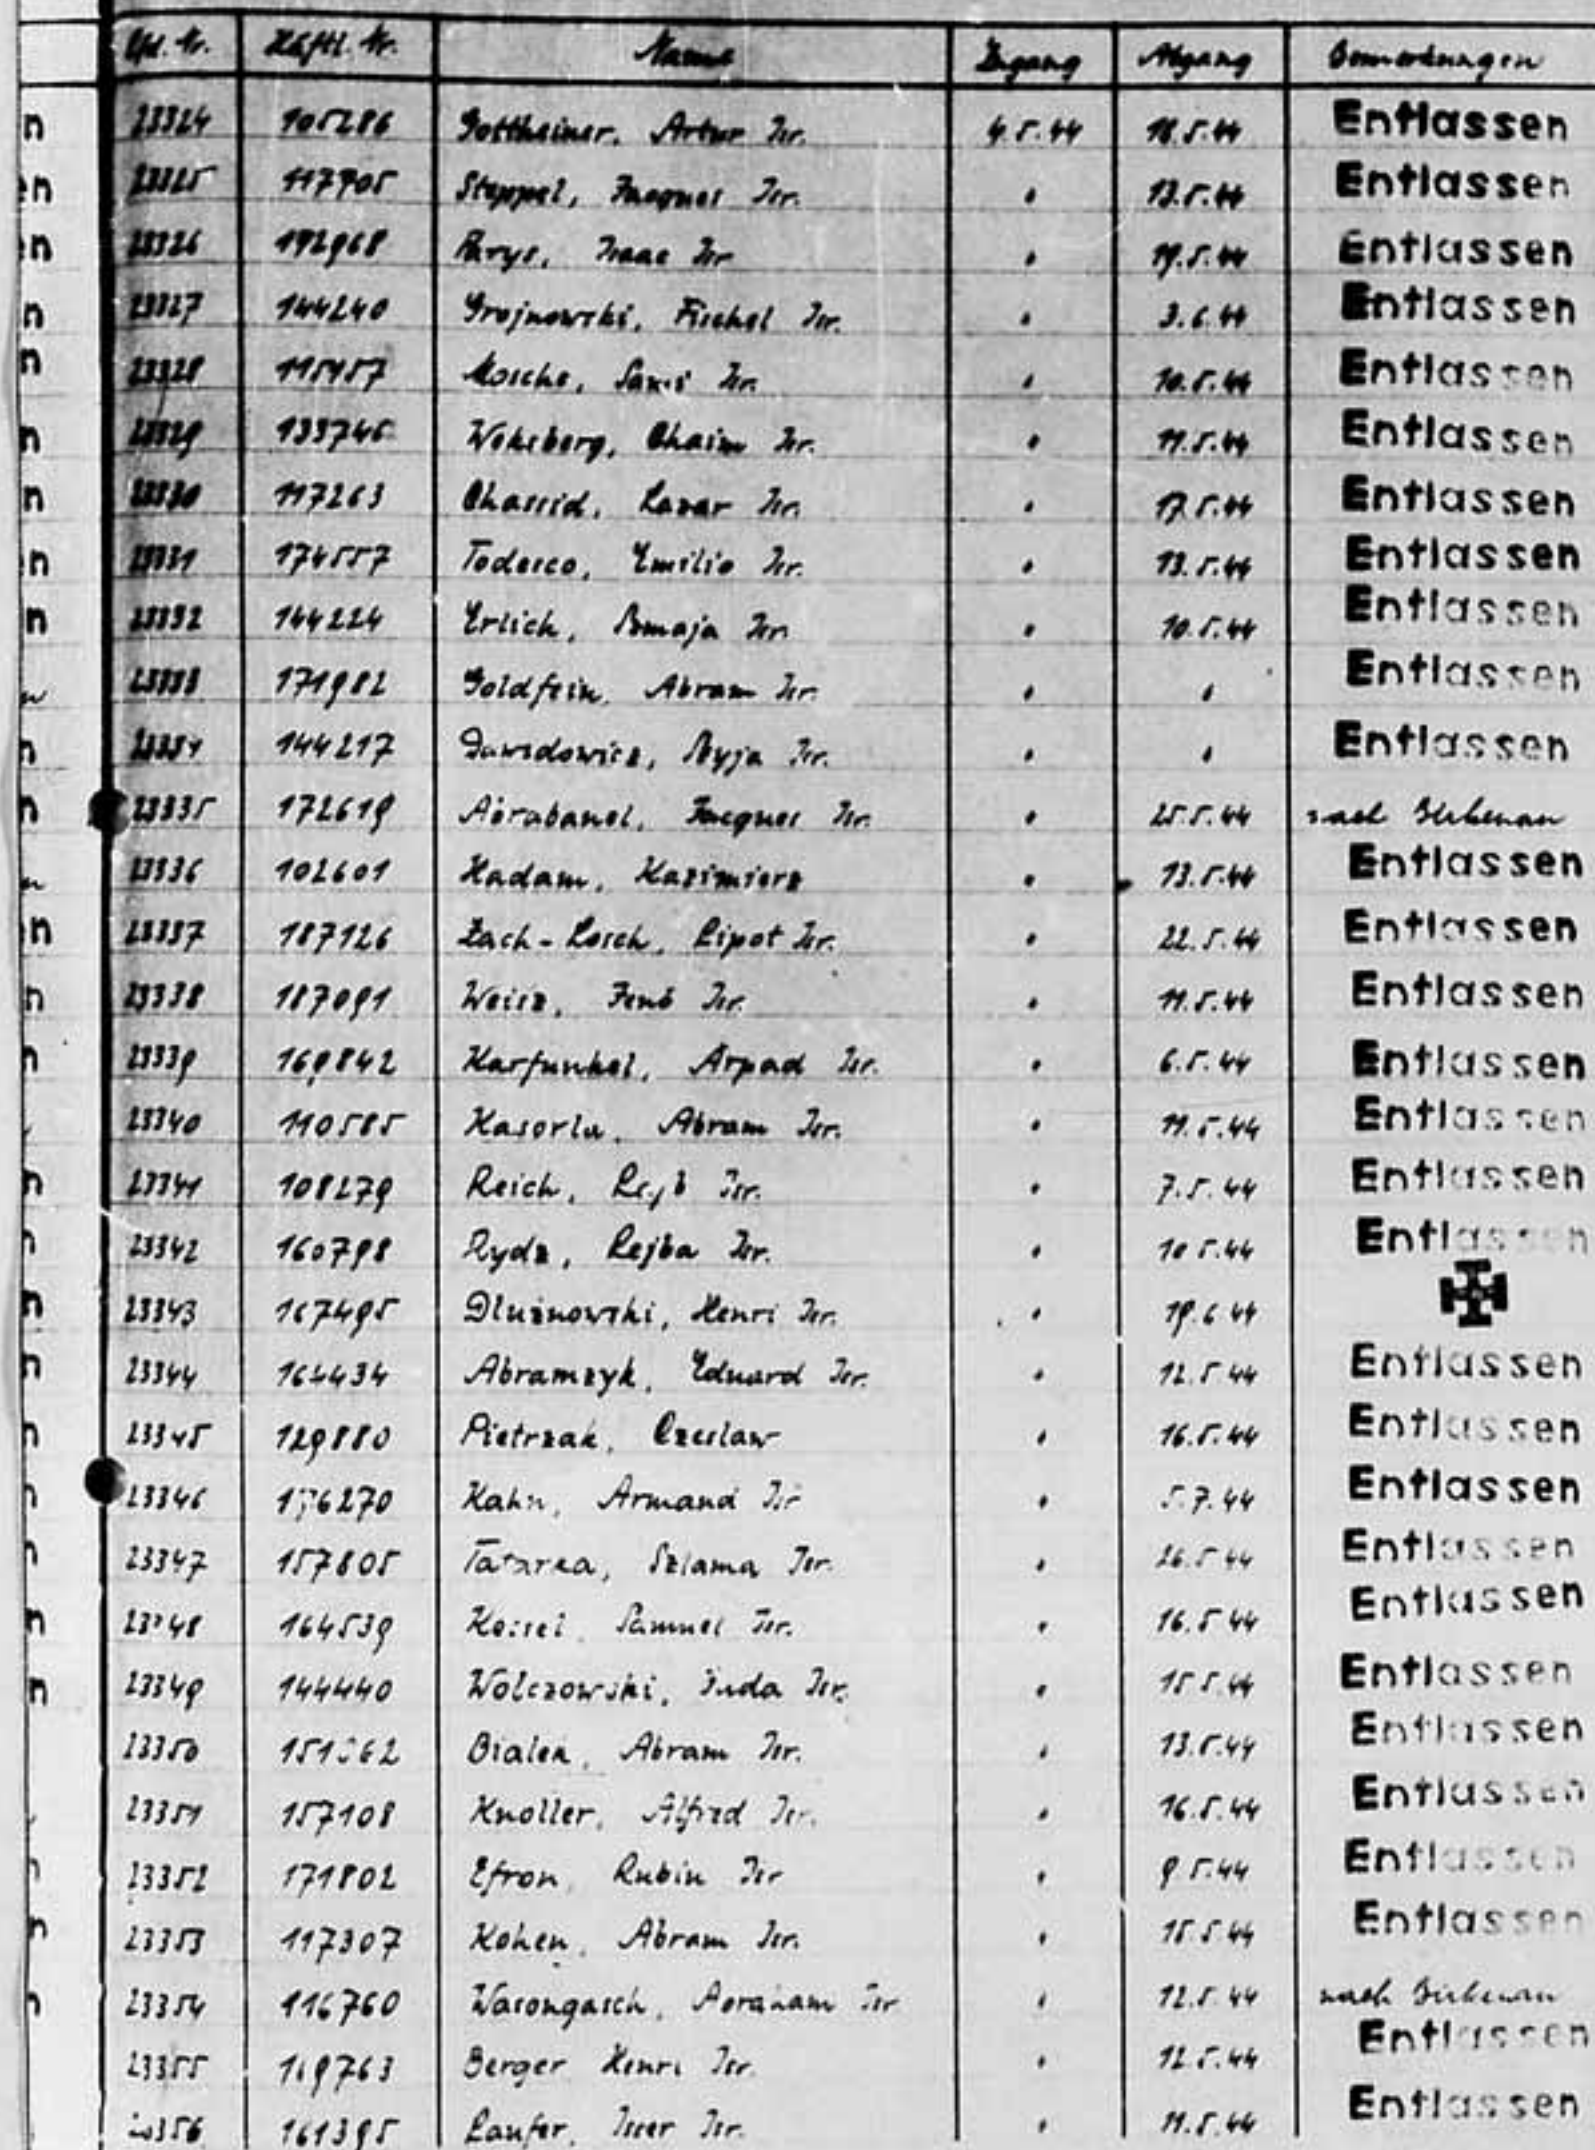 Lfd. Nr. Häftl. Nr. Name Zugang Abgang Bemerkungen
23324 105286 Gottheiner, Artur Isr. 4.5.44 18.5.44 Entlassen
23325 117705 Steppel, Jacques Isr. " 13.5.44 Entlassen
23326 172968 Parys, Isaac Isr. " 19.5.44 Entlassen
23327 144240 Grojnowski, Fischel Isr. " 3.6.44 Entlassen
23328 115457 Mosche, Sami Isr. " 10.5.44 Entlassen
23329 133746 Wekeberg, Chaim Isr. " 11.5.44 Entlassen
23330 117263 Chassid, Lazar Isr. " 17.5.44 Entlassen
23331 174557 Todesco, Emilio Isr. " 13.5.44 Entlassen
23332 144224 Erlich, Szmaja Isr. " 10.5.44 Entlassen
23333 171982 Goldfein, Abram Isr. " " Entlassen
23334 144217 Dawidowicz, Syja Isr. " " Entlassen
23335 172619 Abrabanel, Jacques Isr. " 25.5.44 nach Birkenau
23336 102601 Kadam, Kazimierz " 13.5.44 Entlassen
23337 187126 Zach-Losch, Lipot Isr. " 22.5.44 Entlassen
23338 187091 Weisz, Jenö Isr. " 11.5.44 Entlassen
23339 169842 Karfunkel, Arpad Isr. " 6.5.44 Entlassen
23340 110585 Kasorla, Abram Isr. " 11.5.44 Entlassen
23341 108279 Reich, Isr. " 7.5.44 Entlassen
23342 160798 Rydz, Lejba Isr. " 10 5.44 Entlassen
23343 167495 Dluznowski, Henri Isr. " 19.6 44
23344 164434 Abramzyk, Eduard Isr. " 12.5 44 Entlassen
23345 129880 Pietrzak, Czeslaw " 16.5.44 Entlassen
23346 176270 Kahn, Armand Isr " 5.7.44 Entlassen
23347 157805 Tatarka, Szlama Isr. " 26.5 44 Entlassen
23348 164539 Kossel, Samuel Isr. " 16.5 44 Entlassen
23349 144440 Wolczowski, Juda Isr. " 15 5.44 Entlassen
23350 Bialek, Abram Isr. " 13.5.44 Entlassen
23351 157108 Knoller, Alfred Isr. " 16.5.44 Entlassen
23352 171802 Efron, Rubin Isr " 9 5.44 Entlassen
23353 117307 Kohen, Abram Isr. " 15 5 44 Entlassen
23354 116760 Wasongasch, Abraham Isr " 12.5 44 nach Birkenau
23355 169763 Berger Henri Isr. " 12.5.44 Entlassen
23356 161395 Laufer, Isser Isr. " 11.5.44 Entlassen